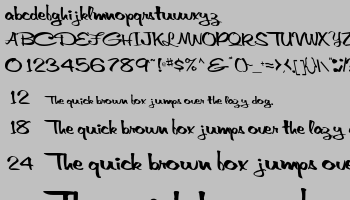 abcdefghijklmnopqrstuvwxyz
ABCDEFGHIJKLMNOPQRSTUVWXYZ
0123456789
12 The quick brown fox jumps over the lazy dog.
18 The quick brown fox jumps over the lazy d
24 The quick brown fox jumps ove